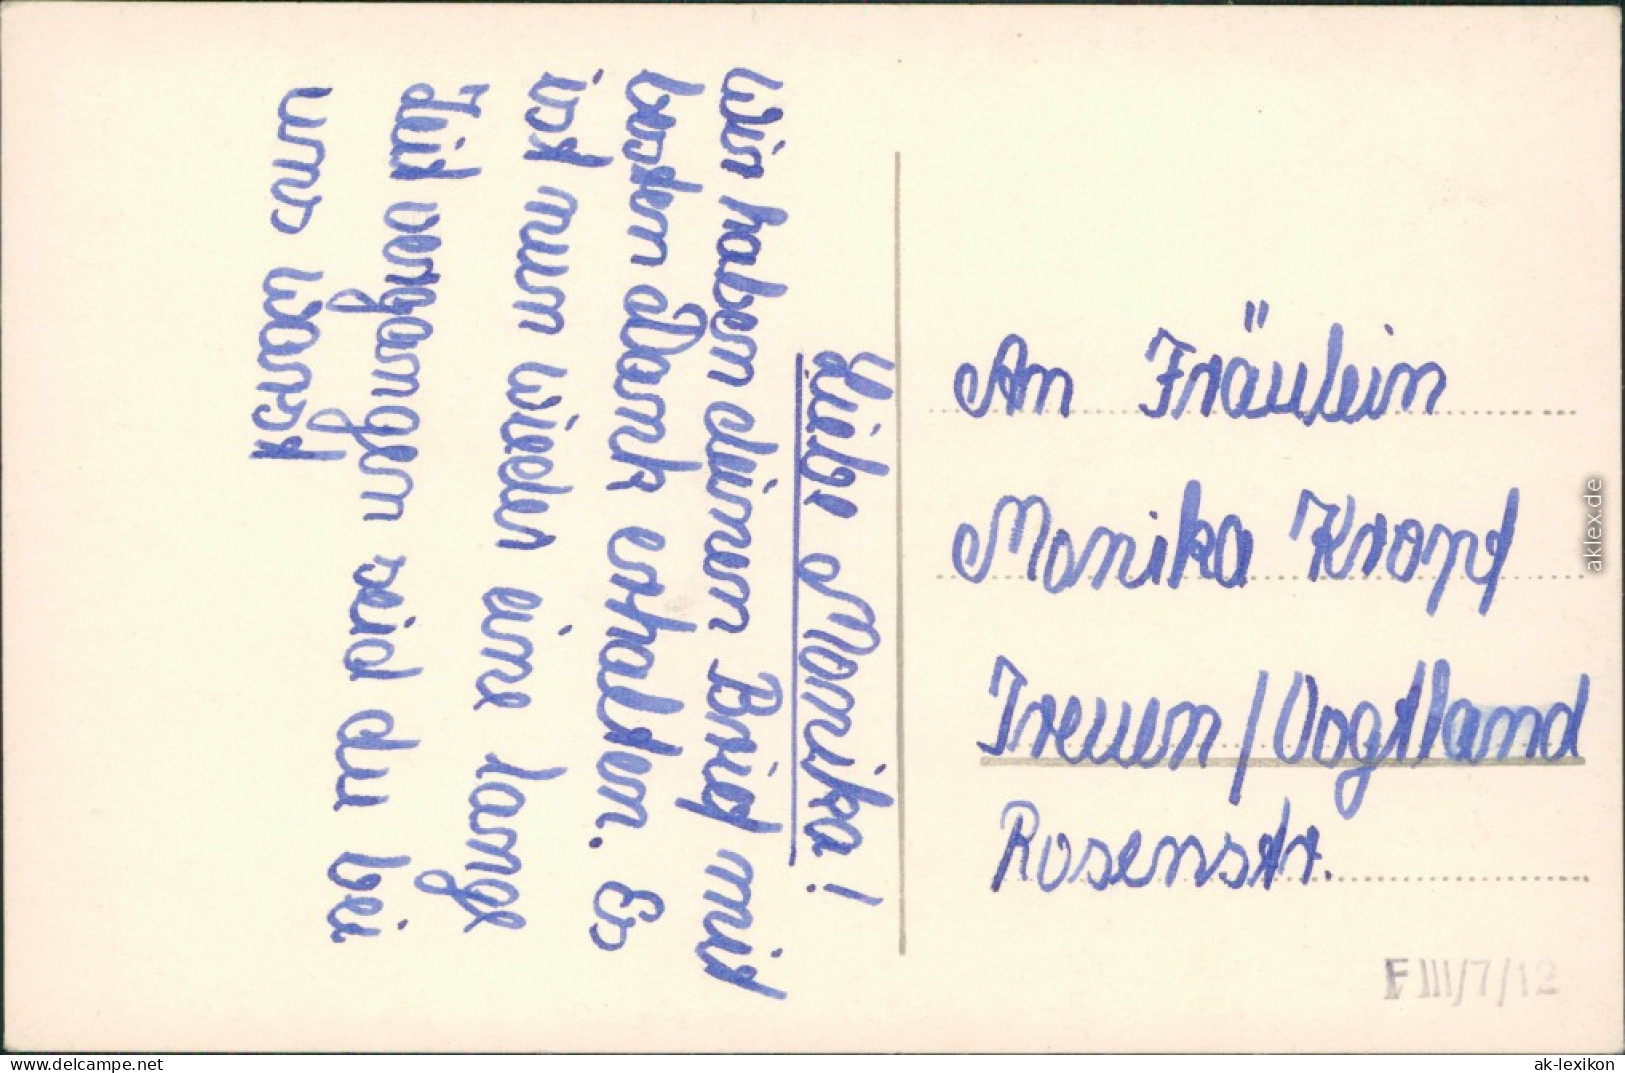 Liebe Monika!
Wir haben deinen Brief mit
bestem Dank erhalten. Es
ist nun wieder eine lange
Zeit vergangen seid du bei
uns warst
An Fräulein
Monika Kropf
Treuen/Vogtland
Rosenstr.
F III/7/12
aklex.de
www.delcampe.net
ak-lexikon